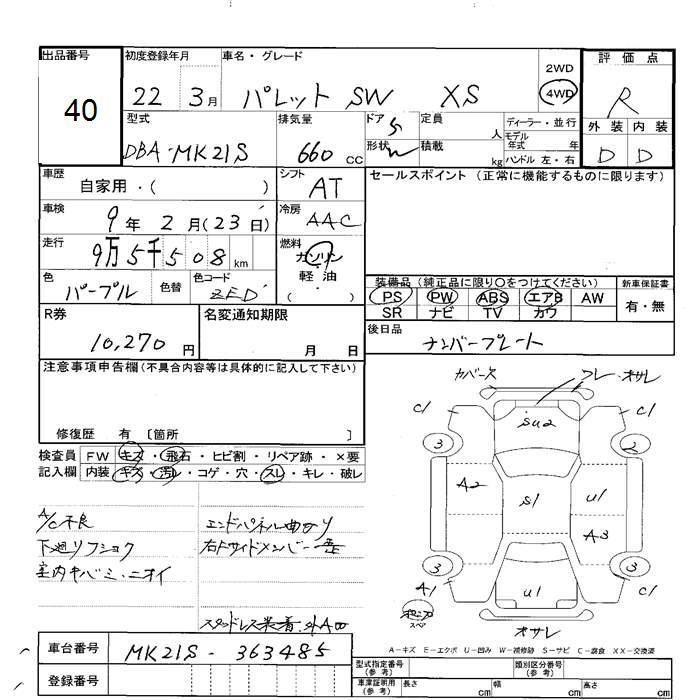 出品番号
40
初度登録年月
22 3月
車名・グレード
パレット SW XS
2WD
4WD
評価点
R
型式
DBA-MK21S
排気量
660 CC
ドア 5
形状 W
定員 人
積載 kg
ディーラー・並行
モデル年式 年
ハンドル 左・右
外装 内装
D D
車歴
自家用・( )
シフト
AT
セールスポイント (正常に機能するものに限ります)
車検
9年 2月(23日)
冷房
AAC
走行
9万5千508km
燃料
ガソリン
軽・油
( )
色
パープル
色替
色コード
ZED
装備品(純正品に限り○をつけてください)
PS PW ABS エアB AW
SR ナビ TV カワ
新車保証書
有・無
R券
10,270円
名変通知期限
月 日
後日品
ナンバープレート
注意事項申告欄(不具合内容等は具体的に記入して下さい)
修復歴 有 〔箇所 〕
検査員
記入欄
FW キズ・飛石・ヒビ割・リペア跡・×要
内装 キズ・汚レ・コゲ・穴・スレ・キレ・破レ
A/C不良
下廻リフショク
室内キバミ・ニオイ
エンドパネル曲ガリ
スタッドレス装着.
カバー欠
フレ・オサレ
C1
C1
SU2
3
2
A2
S1
U1
A3
3
3
A1
U1
C1
スペア
オサレ
A−キズ E−エクボ U−凹み W−補修跡 S−サビ C−腐食 XX−交換済
車台番号
MK21S - 363485
登録番号
型式指定番号(参考)
類別区分番号(参考)
車庫証明用(参考)
長さ cm
幅 cm
高さ cm